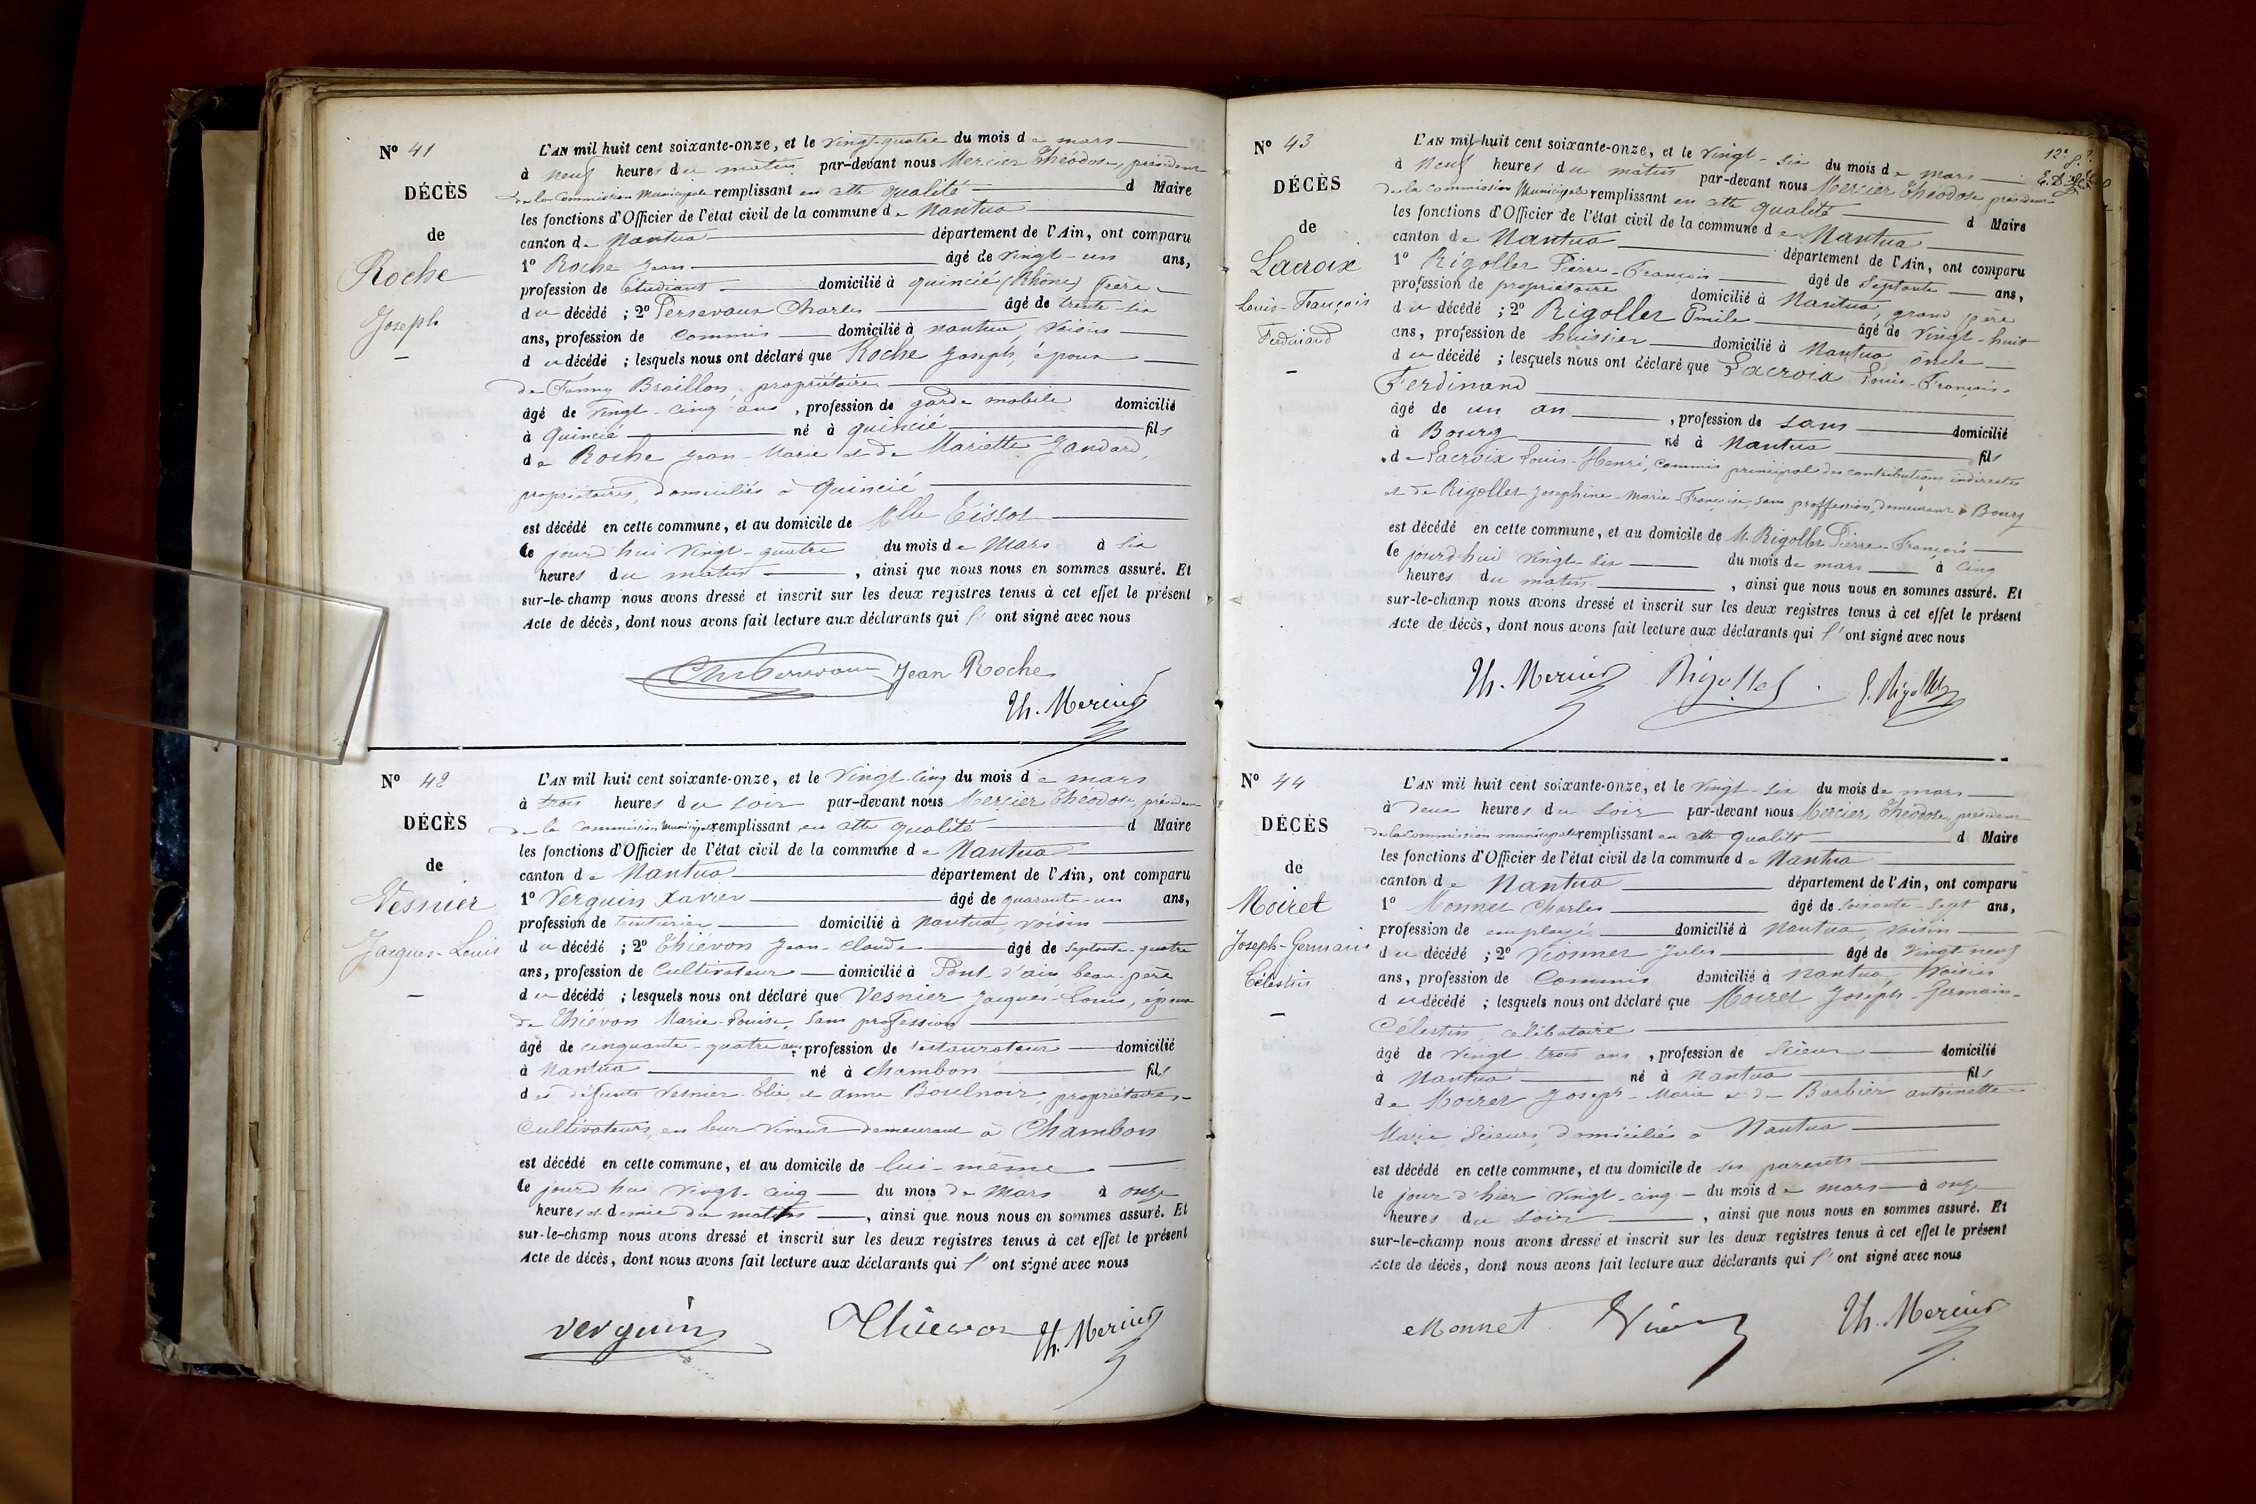 Nº 41
DÉCÈS
de
Roche
Joseph
L'AN mil huit cent soixante-onze, et le vingt-quatre du mois de mars
à neuf heures du matin par-devant nous Mercier Théodose, président
de la Commission Municipale remplissant en cette qualité d Maire
les fonctions d'Officier de l'état civil de la commune de Nantua
canton de Nantua département de l'Ain, ont comparu
1º Roche Jean âgé de vingt-un ans,
profession de étudiant domicilié à quincié (Rhône) frère
du décédé ; 2º Persavaux Charles âgé de trente-six
ans, profession de commis domicilié à nantua, voisin
du décédé ; lesquels nous ont déclaré que Roche Joseph, époux
de Fanny Braillon, propriétaire
âgé de vingt-cinq ans, profession de garde mobile domicilié
à Quincié né à quincié fils
de Roche Jean-Marie et de Mariette Jandard,
propriétaires, domiciliés à Quincié
est décédé en cette commune, et au domicile de Mlle Tissot
le jourd'hui vingt-quatre du mois de Mars à six
heures du matin, ainsi que nous nous en sommes assuré. Et
sur-le-champ nous avons dressé et inscrit sur les deux registres tenus à cet effet le présent
Acte de décès, dont nous avons fait lecture aux déclarants qui l'ont signé avec nous
Jean Roche
Th. Mercier
Nº 42
DÉCÈS
de
Vesnier
Jacques-Louis
L'AN mil huit cent soixante-onze, et le vingt-cinq du mois de mars
à trois heures du soir par-devant nous Mercier Théodose, président
de la commission Municipale remplissant en cette qualité d Maire
les fonctions d'Officier de l'état civil de la commune de Nantua
canton de Nantua département de l'Ain, ont comparu
1º Verguin Xavier âgé de quarante-un ans,
profession de teinturier domicilié à Nantua, voisin
du décédé ; 2º Thiévon Jean-Claude âgé de septante-quatre
ans, profession de Cultivateur domicilié à Pont-d'ain, beau-père
du décédé ; lesquels nous ont déclaré que Vesnier Jacques-Louis, époux
de Thiévon Marie-Louise, sans profession
âgé de cinquante-quatre ans, profession de restaurateur domicilié
à Nantua né à Chambon fils
des défunts Vesnier Elie et Anne Boulnoir, propriétaires-
Cultivateurs, en leur vivant demeurant à Chambon
est décédé en cette commune, et au domicile de lui-même
le jourd'hui vingt-cinq du mois de Mars à onze
heures et demie du matin, ainsi que nous nous en sommes assuré. Et
sur-le-champ nous avons dressé et inscrit sur les deux registres tenus à cet effet le présent
Acte de décès, dont nous avons fait lecture aux déclarants qui l'ont signé avec nous
verguin Thievon Th. Mercier
Nº 43
DÉCÈS
de
Lacroix
Louis-François
Ferdinand
L'AN mil huit cent soixante-onze, et le vingt-six du mois de mars
à neuf heures du matin par-devant nous Mercier Théodose, président
de la commission Municipale remplissant en cette qualité d Maire
les fonctions d'Officier de l'état civil de la commune de Nantua
canton de Nantua département de l'Ain, ont comparu
1º Rigollet Pierre-François âgé de septante ans,
profession de propriétaire domicilié à Nantua, grand père
du décédé ; 2º Rigollet Emile âgé de vingt-huit
ans, profession de huissier domicilié à Nantua, oncle
du décédé ; lesquels nous ont déclaré que Lacroix Louis-François-
Ferdinand
âgé de un an, profession de sans domicilié
à Bourg né à Nantua fils
de Lacroix Louis-Henri, commis principal des contributions indirectes
et de Rigollet Josephine-Marie-Françoise, sans proffession, demeurant à Bourg
est décédé en cette commune, et au domicile de M. Rigollet Pierre-François
le jourd'hui vingt-six du mois de mars à cinq
heures du matin, ainsi que nous nous en sommes assuré. Et
sur-le-champ nous avons dressé et inscrit sur les deux registres tenus à cet effet le présent
Acte de décès, dont nous avons fait lecture aux déclarants qui l'ont signé avec nous
Th. Mercier Rigollet E. Rigollet
Nº 44
DÉCÈS
de
Moiret
Joseph-Germain
Célestin
L'AN mil huit cent soixante-onze, et le vingt-six du mois de mars
à deux heures du soir par-devant nous Mercier Théodose, président
de la Commission municipale remplissant en cette qualité d Maire
les fonctions d'Officier de l'état civil de la commune de Nantua
canton de Nantua département de l'Ain, ont comparu
1º Monnet Charles âgé de soixante-sept ans,
profession de employé domicilié à Nantua, voisin
du décédé ; 2º Vionnet Jules âgé de vingt-neuf
ans, profession de Commis domicilié à Nantua, voisin
du décédé ; lesquels nous ont déclaré que Moiret Joseph-Germain-
Célestin, célibataire
âgé de vingt-trois ans, profession de Scieur domicilié
à Nantua né à Nantua fils
de Moiret Joseph-Marie et de Barbier antoinette-
Marie, Scieurs, domiciliés à Nantua
est décédé en cette commune, et au domicile de ses parents
le jour d'hier vingt-cinq du mois de mars à onze
heures du soir, ainsi que nous nous en sommes assuré. Et
sur-le-champ nous avons dressé et inscrit sur les deux registres tenus à cet effet le présent
Acte de décès, dont nous avons fait lecture aux déclarants qui l'ont signé avec nous
Monnet Th. Mercier